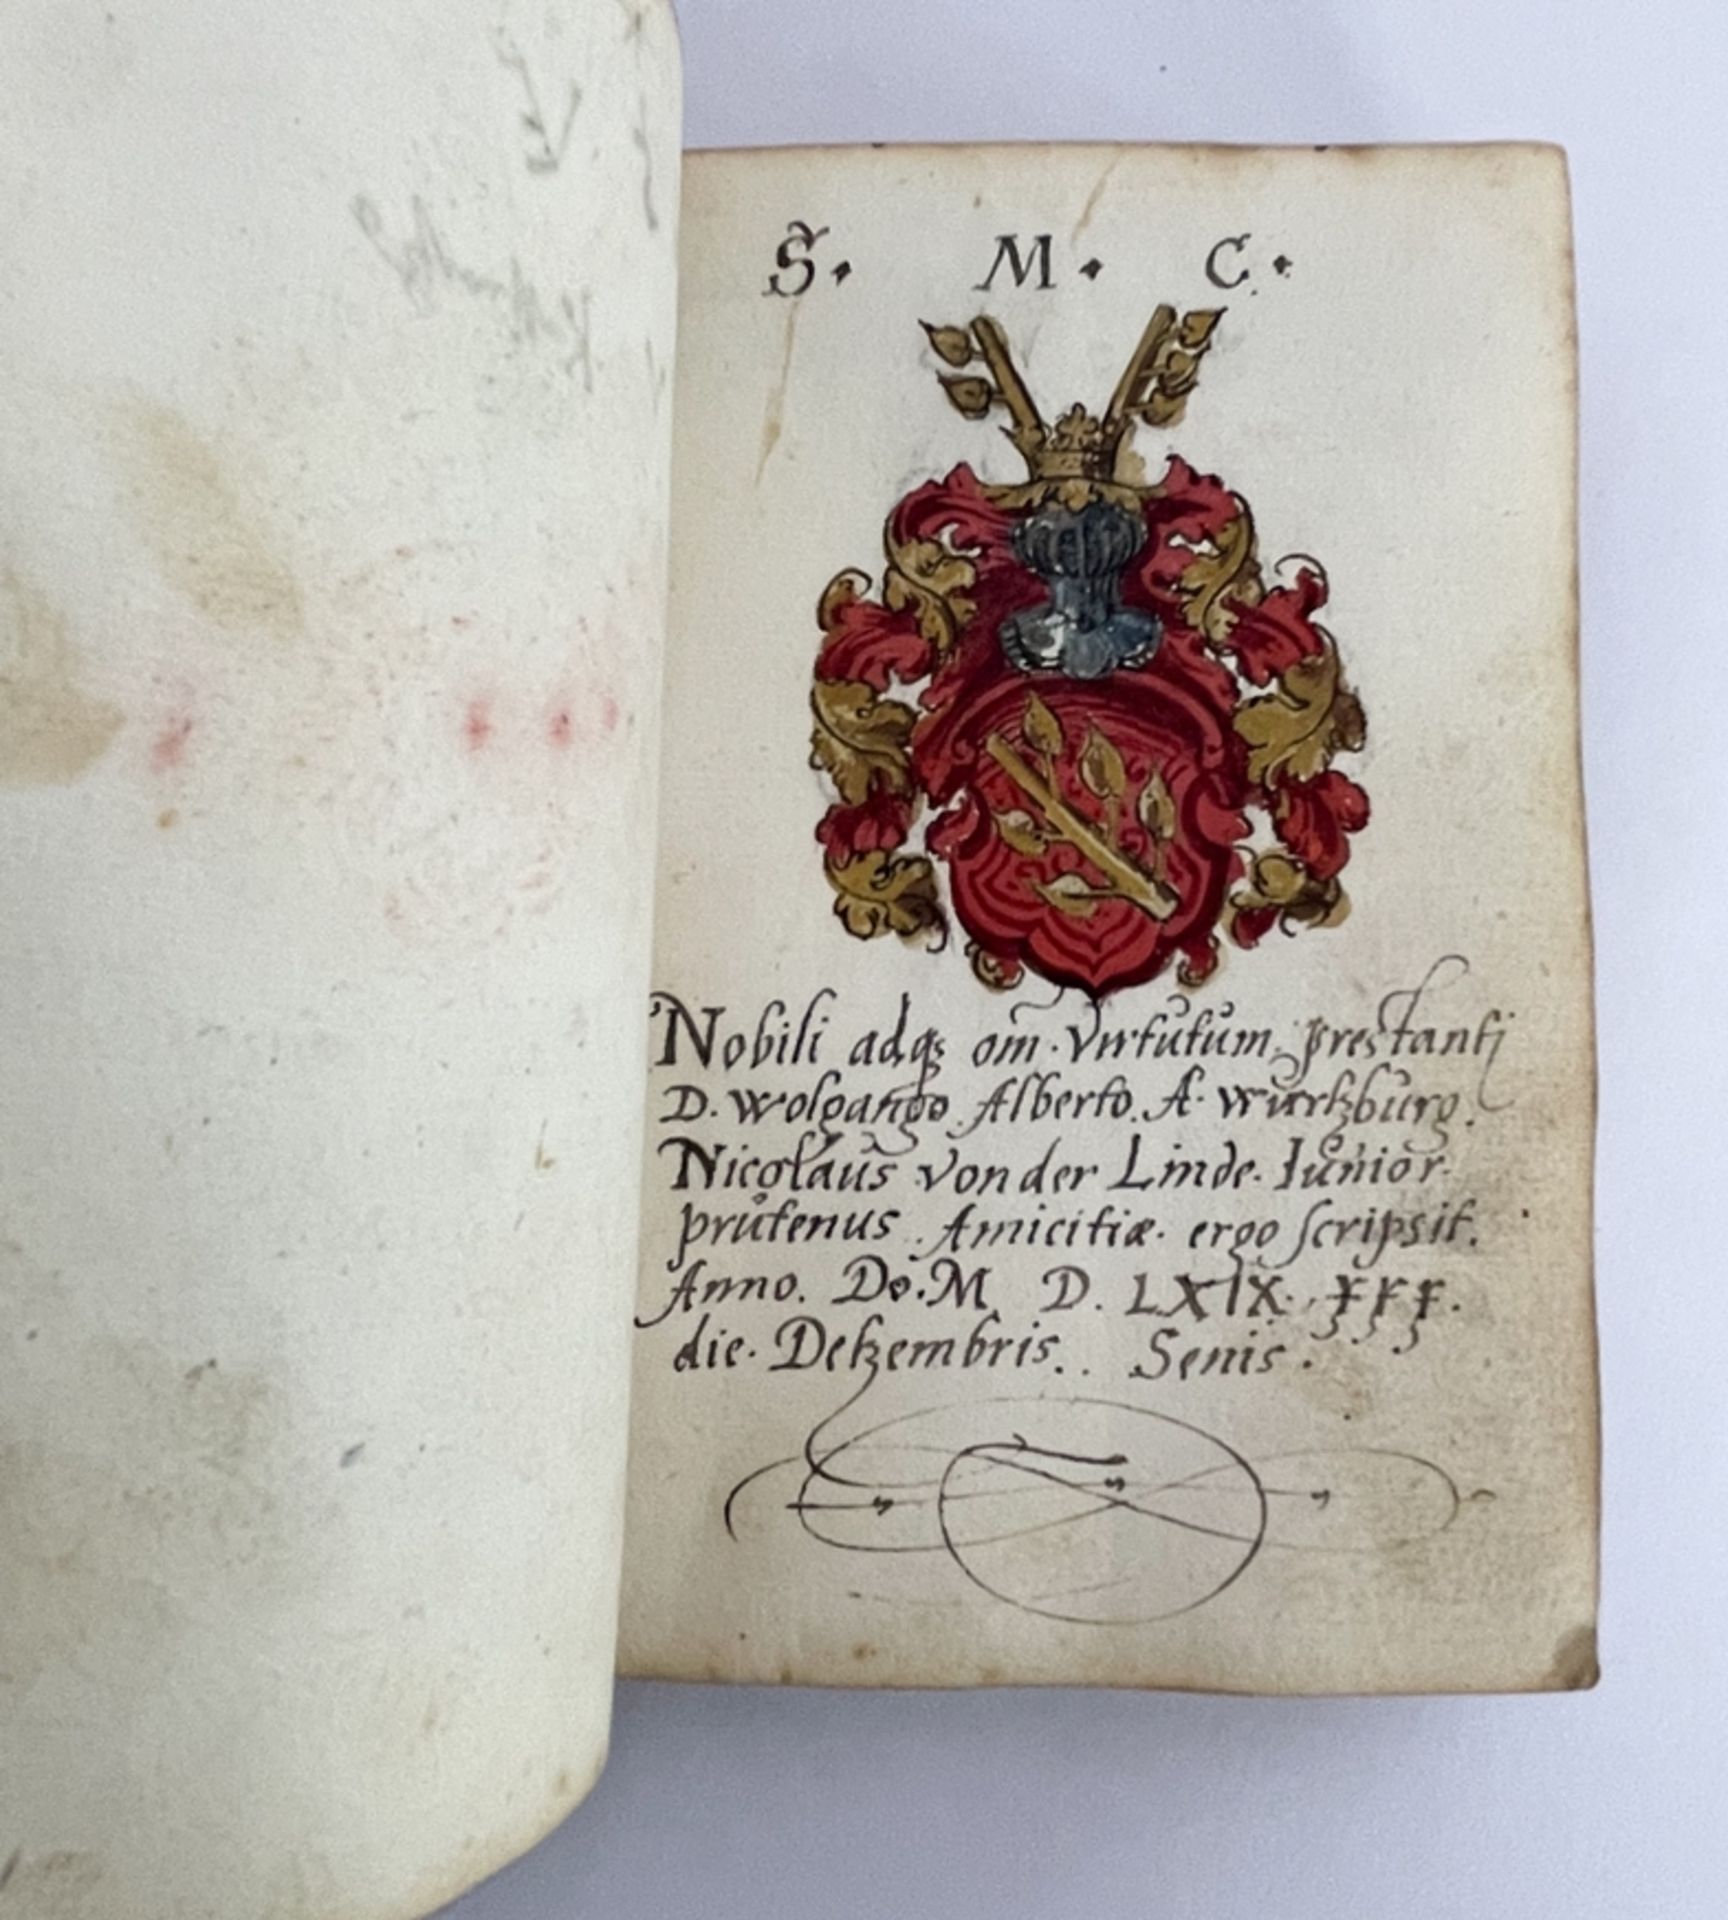 S. M. C.
Nobili adq; om. Virtutum prestanti
D. Wolgango Alberto. A. Wurtzburg.
Nicolaus von der Linde. Iunior.
prutenus. Amicitiæ. ergo scripsit.
Anno. Do. M D. LXIX.
die. Detzembris.. Senis.